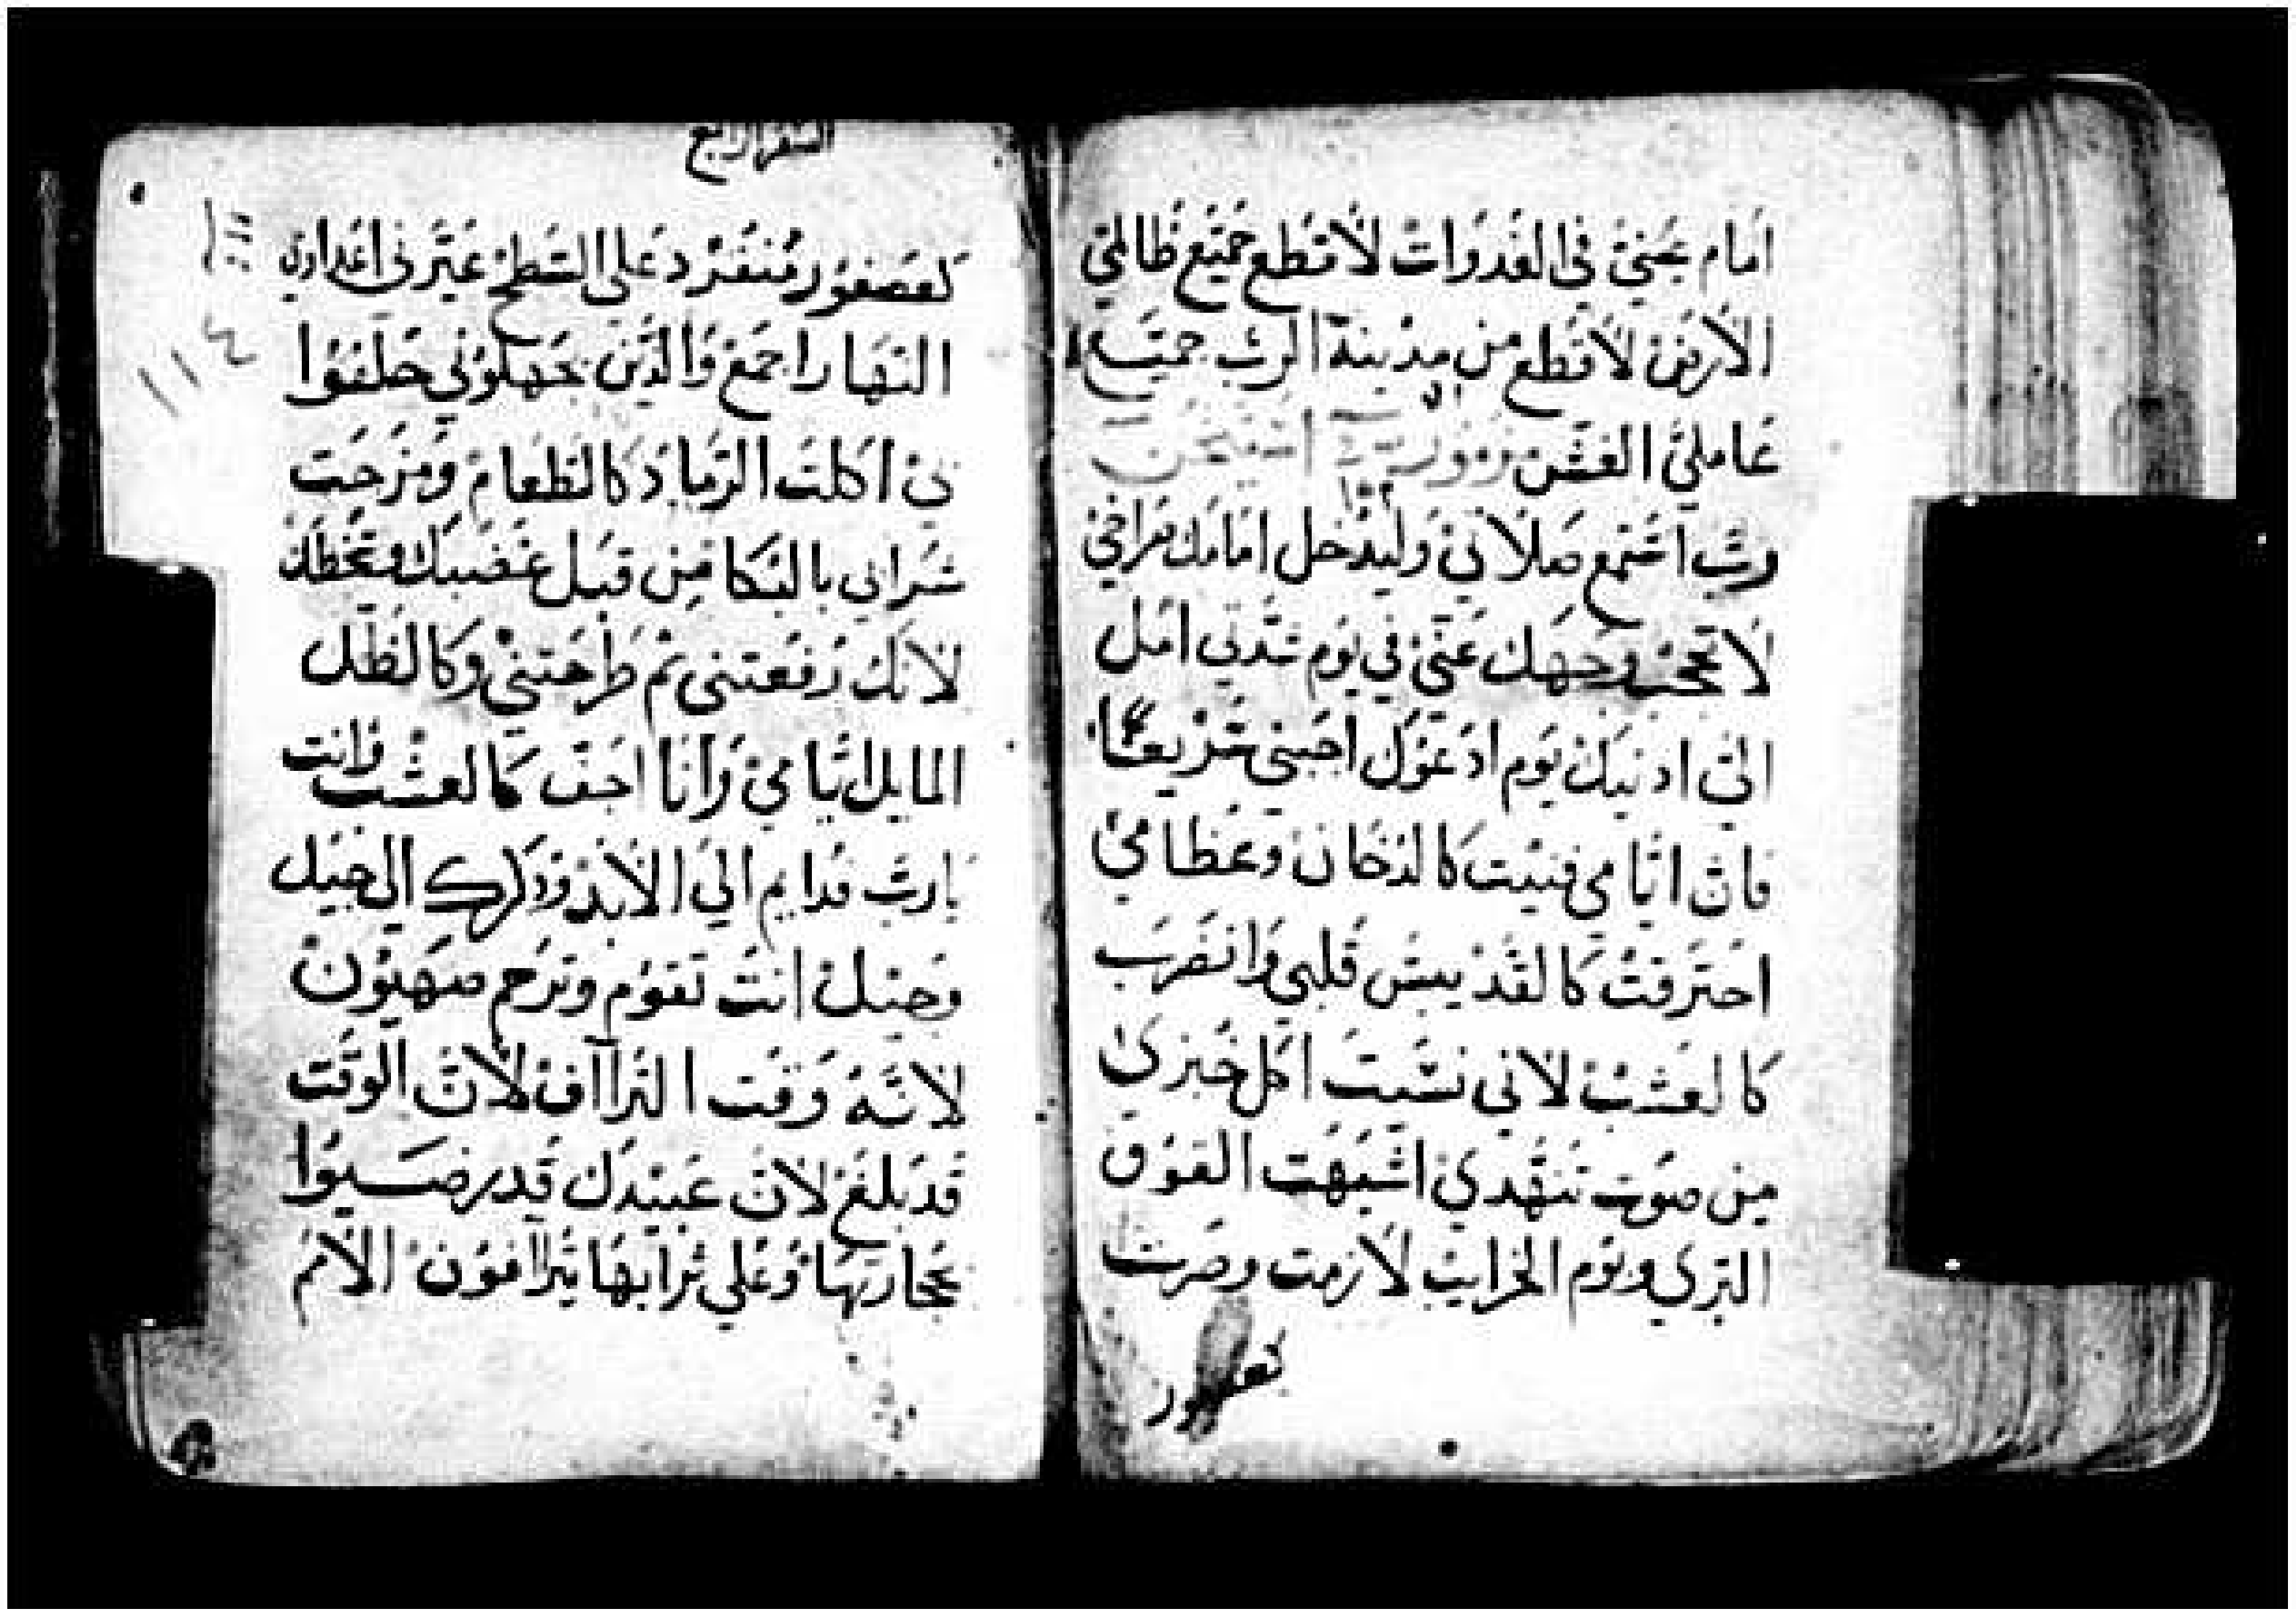 امام عيني في الغدوات لاقطع جميع ظالمي
الارض لاقطع من مدينة الرب جميع
عاملي الغش مزمور
رب استمع صلاتي وليدخل امامك صراخي
لا تحجب وجهك عني في يوم شدتي امل
الي اذنيك يوم ادعوك اجبني سريعا
فان ايامي فنيت كالدخان وعظامي
احترقت كالقد يبس قلبي وانضرب
كالعشب لاني نسيت اكل خبزي
من صوت تنهدي اشبهت القوق
البري وبوم الخرايب لازمت وصرت
كعصفور
السفر الرابع
كعصفور منفرد على السطح عيرني اعداي
النهار اجمع والذين جهلوني حلفوا
بي اكلت الرماد كالطعام ومزجت
شرابي بالبكا من قبل غضبك وسخطك
لانك رفعتني ثم طرحتني وكالظل
المايل ايامي وانا اجف كالعشب وانت
يارب فدايم الي الابد وذكرك الي جيل
وجيل انت تقوم وترحم صهيون
لانه وقت التراآف لان الوقت
قد بلغ لان عبيدك قد رضيوا
بحجارتها وعلي ترابها يتراآفون الامم
١١٤